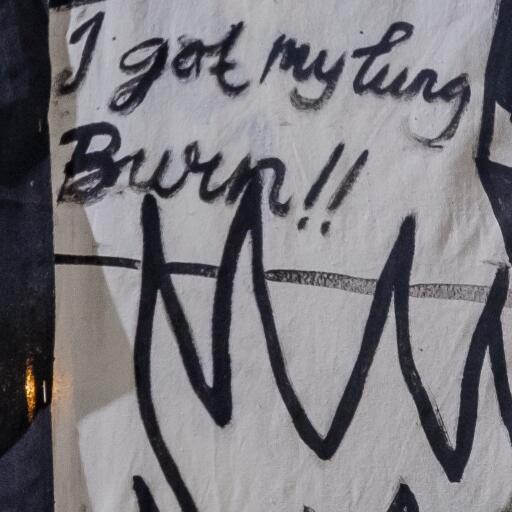 I got my lung
Burn!!